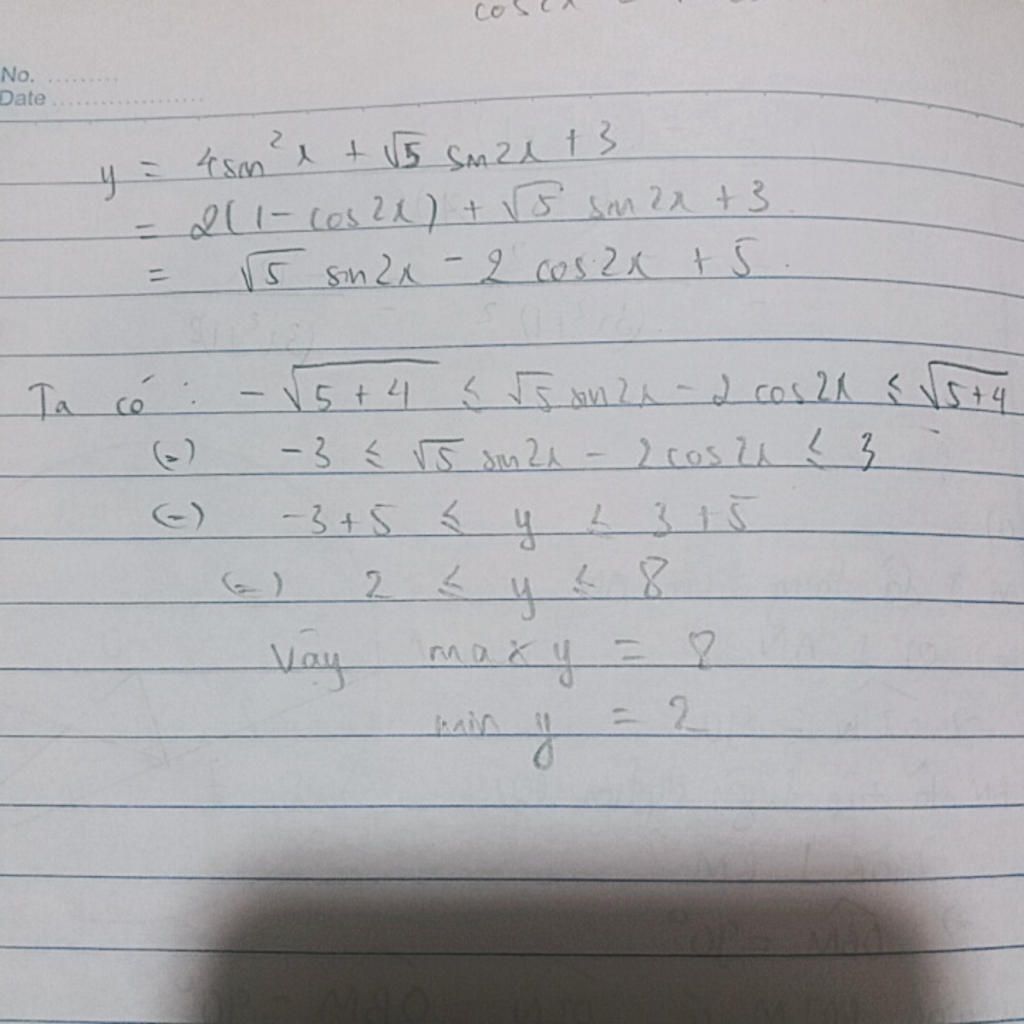 No. ..........
Date ....................
y = 4sin²x + √5 sin2x + 3
= 2(1 - cos2x) + √5 sin2x + 3
= √5 sin2x - 2 cos2x + 5.
Ta có: -√(5+4) ≤ √5 sin2x - 2 cos2x ≤ √(5+4)
(=) -3 ≤ √5 sin2x - 2cos2x ≤ 3
(=) -3+5 ≤ y ≤ 3+5
(=) 2 ≤ y ≤ 8
Vậy max y = 8
min y = 2